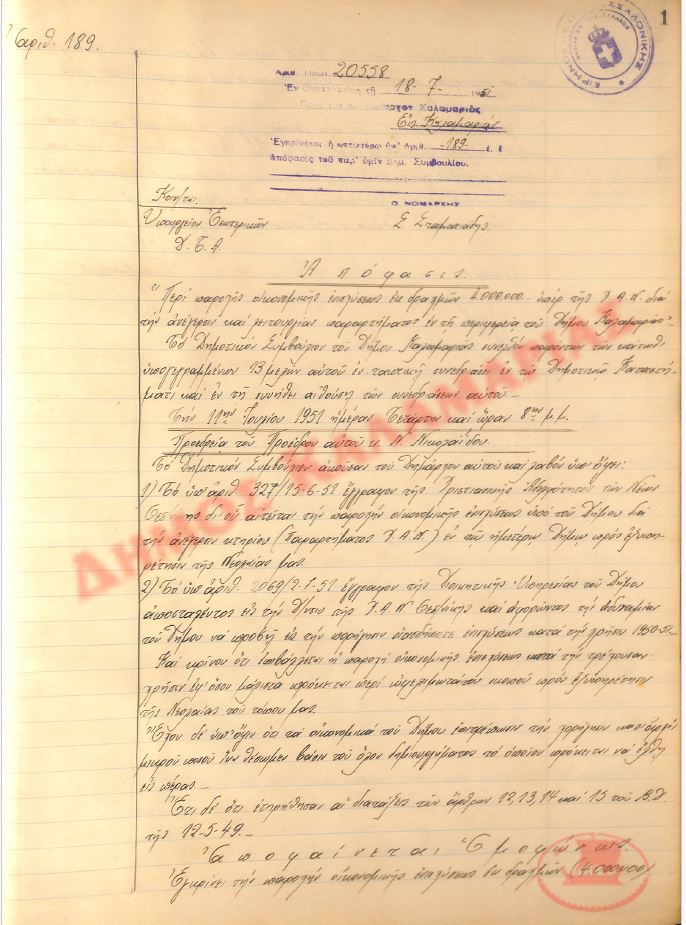 1
Ἀριθ. 189.
ΕΙΡΗΝΟΔΙΚ ΘΕΣΣΑΛΟΝΙΚΗΣ
Αριθ. Πρωτ. 20558
Ἐν Θεσσαλονίκῃ τῇ 18-7- 1951
Πρὸς τὸν κ. Δήμαρχον Καλαμαριᾶς
Εἰς Καλαμαριάν
Ἐγκρίνεται ἡ κατωτέρω ὑπ' ἀριθ. -189- ἐ. ἔ
ἀπόφασις τοῦ παρ' ὑμῖν Δημ. Συμβουλίου.
Ο ΝΟΜΑΡΧΗΣ
Κοιν/ται
Ὑπουργεῖον Ἐσωτερικῶν
Σ. Σταματιάδης
Δ. Τ. Α.
Ἀπόφασις.
"Περὶ παροχῆς οἰκονομικῆς ἐνισχύσεως ἐκ δραχμῶν 4.000.000- ὑπὲρ τῆς Χ.Α.Ν. διὰ
τὴν ἀνέγερσιν καὶ λειτουργίαν παραρτήματος ἐν τῇ περιφερείᾳ τοῦ Δήμου Καλαμαριᾶς"-
Τὸ Δημοτικὸν Συμβούλιον τοῦ Δήμου Καλαμαριᾶς συνελθὸν παρόντων τῶν κάτωθι
ὑπογεγραμμένων 13 μελῶν αὐτοῦ ἐν τακτικῇ συνεδριάσει ἐν τῷ Δημοτικῷ Καταστή-
ματι καὶ ἐν τῇ συνήθει αἰθούσῃ τῶν συνεδριάσεων αὐτοῦ.-
Τὴν 11ην Ἰουλίου 1951 ἡμέραν Τετάρτην καὶ ὥραν 8ην μ.μ.
Προεδρείᾳ τοῦ Προέδρου αὐτοῦ κ. Ν. Νικολαΐδου.
Τὸ Δημοτικὸν Συμβούλιον ἀκοῦσαν τοῦ Δημάρχου αὐτοῦ καὶ λαβὸν ὑπ' ὄψει:
1) Τὸ ὑπ' ἀριθ. 327/15-6-51 ἔγγραφον τῆς Χριστιανικῆς Ἀδελφότητος τῶν Νέων
Θεσ/νίκης δι' οὗ αἰτεῖται τὴν παροχὴν οἰκονομικῆς ἐνισχύσεως ὑπὸ τοῦ Δήμου διὰ
τὴν ἀνέγερσιν κτηρίου (Παραρτήματος Χ.Α.Ν) ἐν τῷ ἡμετέρῳ Δήμῳ πρὸς ἐξυπη-
ρέτησιν τῆς Νεολαίας μας.
2) Τὸ ὑπ' ἀριθ. 2069/2-7-51 ἔγγραφον τῆς Διοικητικῆς Ὑπηρεσίας τοῦ Δήμου
ἀποσταλέντος εἰς τὴν Δ/νσιν τῆς Χ.Α.Ν Θεσ/νίκης καὶ ἀφορῶντος τὴν ἀδυναμίαν
τοῦ Δήμου νὰ προβῇ εἰς τὴν παροχὴν οἱασδήποτε ἐνισχύσεως κατὰ τὴν χρῆσιν 1950-51.-
Καὶ κρίνον ὅτι ἐπιβάλλεται ἡ παροχὴ οἰκονομικῆς ἐνισχύσεως κατὰ τὴν τρέχουσαν
χρῆσιν ἐφ' ὅσον μάλιστα πρόκειται περὶ ὠφελιμωτάτου σκοποῦ πρὸς ἐξυπηρέτησιν
τῆς Νεολαίας τοῦ τόπου μας.
Ἔχον δὲ ὑπ' ὄψιν ὅτι τὰ οἰκονομικὰ τοῦ Δήμου ἐπιτρέπουν τὴν χορήγησιν κατ' ἀρχὴν
μικροῦ ποσοῦ ἵνα θέσωμεν βάσιν τοῦ ὅλου δημιουργήματος τὸ ὁποῖον πρόκειται νὰ ἔλθῃ
εἰς πέρας.-
Ἔτι δὲ ὅτι ἐτηρήθησαν αἱ διατάξεις τῶν ἄρθρων 12, 13, 14 καὶ 15 τοῦ Β.Δ.
τῆς 12-5-49.-
Ἀποφαίνεται Ὁμοφώνως.
Ἐγκρίνει τὴν παροχὴν οἰκονομικῆς ἐνισχύσεως ἐκ δραχμῶν (4.000.000)
ΔΗΜΟΣ ΚΑΛΑΜΑΡΙΑΣ